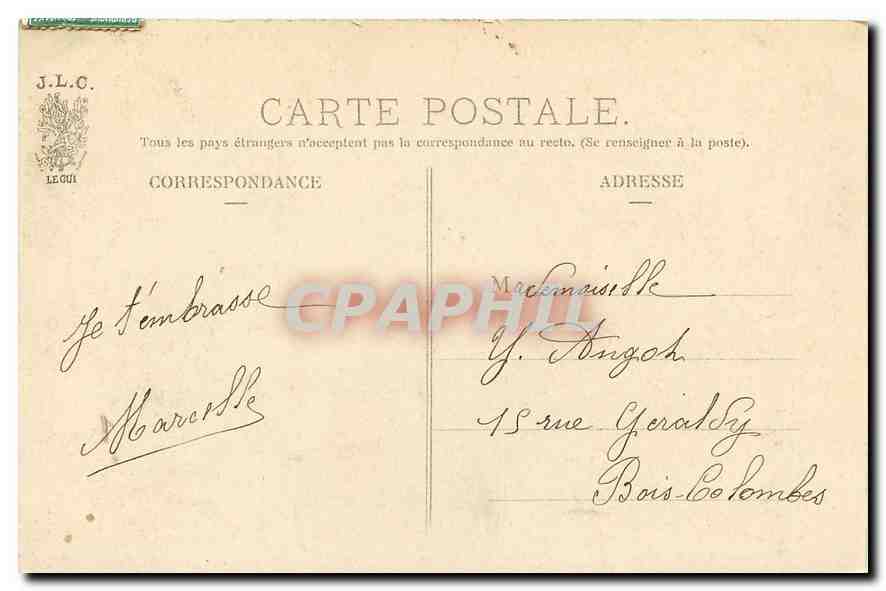 J.L.C.
LE GUI
CARTE POSTALE.
Tous les pays étrangers n'acceptent pas la correspondance au recto. (Se renseigner à la poste).
CORRESPONDANCE
ADRESSE
Je t'embrasse
Marcelle
Mademoiselle
Y. Angoh
15 rue Geraldy
Bois-Colombes
CPAPHIL